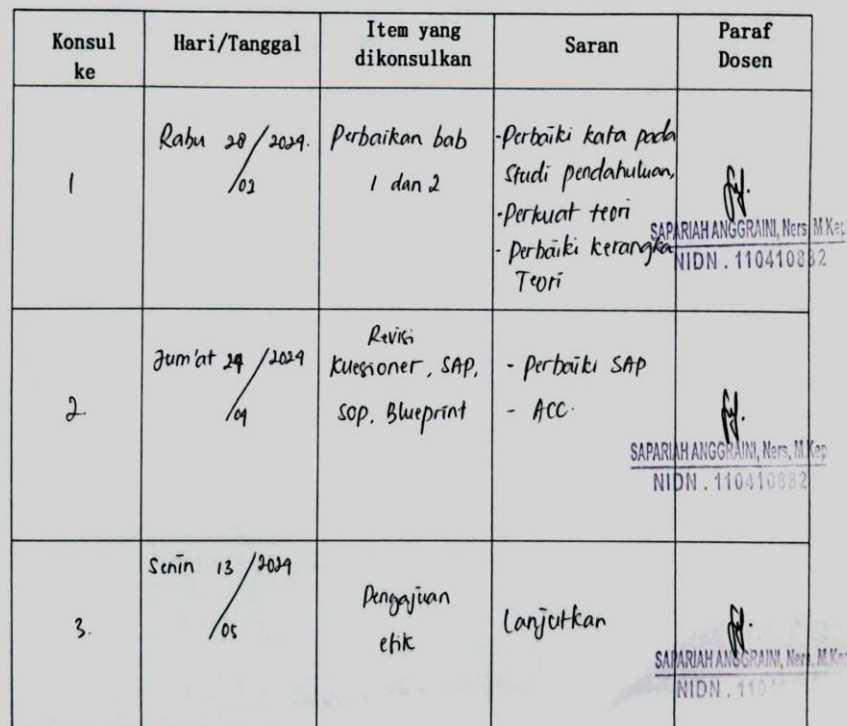 Konsul ke
Hari/Tanggal
Item yang dikonsulkan
Saran
Paraf Dosen
1
Rabu 28/2024.
/02
Perbaikan bab
1 dan 2
-Perbaiki kata pada
Studi pendahuluan,
-Perkuat teori
- Perbaiki kerangka
Teori
SAPARIAH ANGGRAINI, Ners, M.Kep
NIDN . 110410882
2.
Jum'at 24/2024
/04
Revisi
Kuesioner, SAP,
SOP, Blueprint
- Perbaiki SAP
- ACC.
SAPARIAH ANGGRAINI, Ners, M.Kep
NIDN . 110410882
3.
Senin 13/2024
/05
Pengajuan
etik
Lanjutkan
SAPARIAH ANGGRAINI, Ners, M.Kep
NIDN . 110